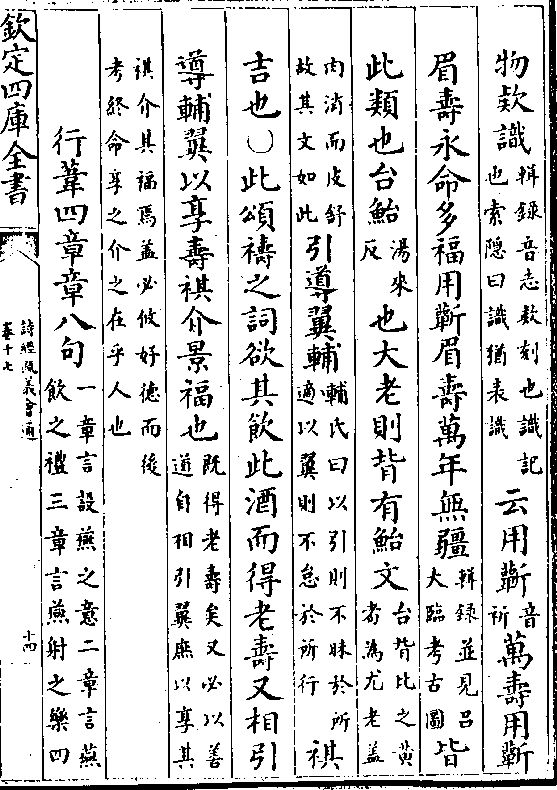 物欵識輯錄音志款刻也識記也索隠曰識猶表識云用蘄音祈萬夀用蘄
眉夀永命多福用蘄眉夀萬年無疆輯錄並見吕大臨考古圖皆
此類也台鮐湯來反也大老則背有鮐文台背比之黄耉為尤老蓋
肉消而皮舒故其文如此引導翼輔輔氏曰以引則不昧於所適以翼則不怠於所行祺
吉也○此頌禱之詞欲其飲此酒而得老夀又相引
導輔翼以享夀祺介景福也既得老夀矣又必以善道自相引翼庶以享其
祺介其福焉蓋必攸好德而後考終命享之介之在乎人也
行葦四章章八句一章言設燕之意二章言燕飲之禮三章言燕射之樂四
欽定四庫全書
詩經疏義會通
卷十七
十四